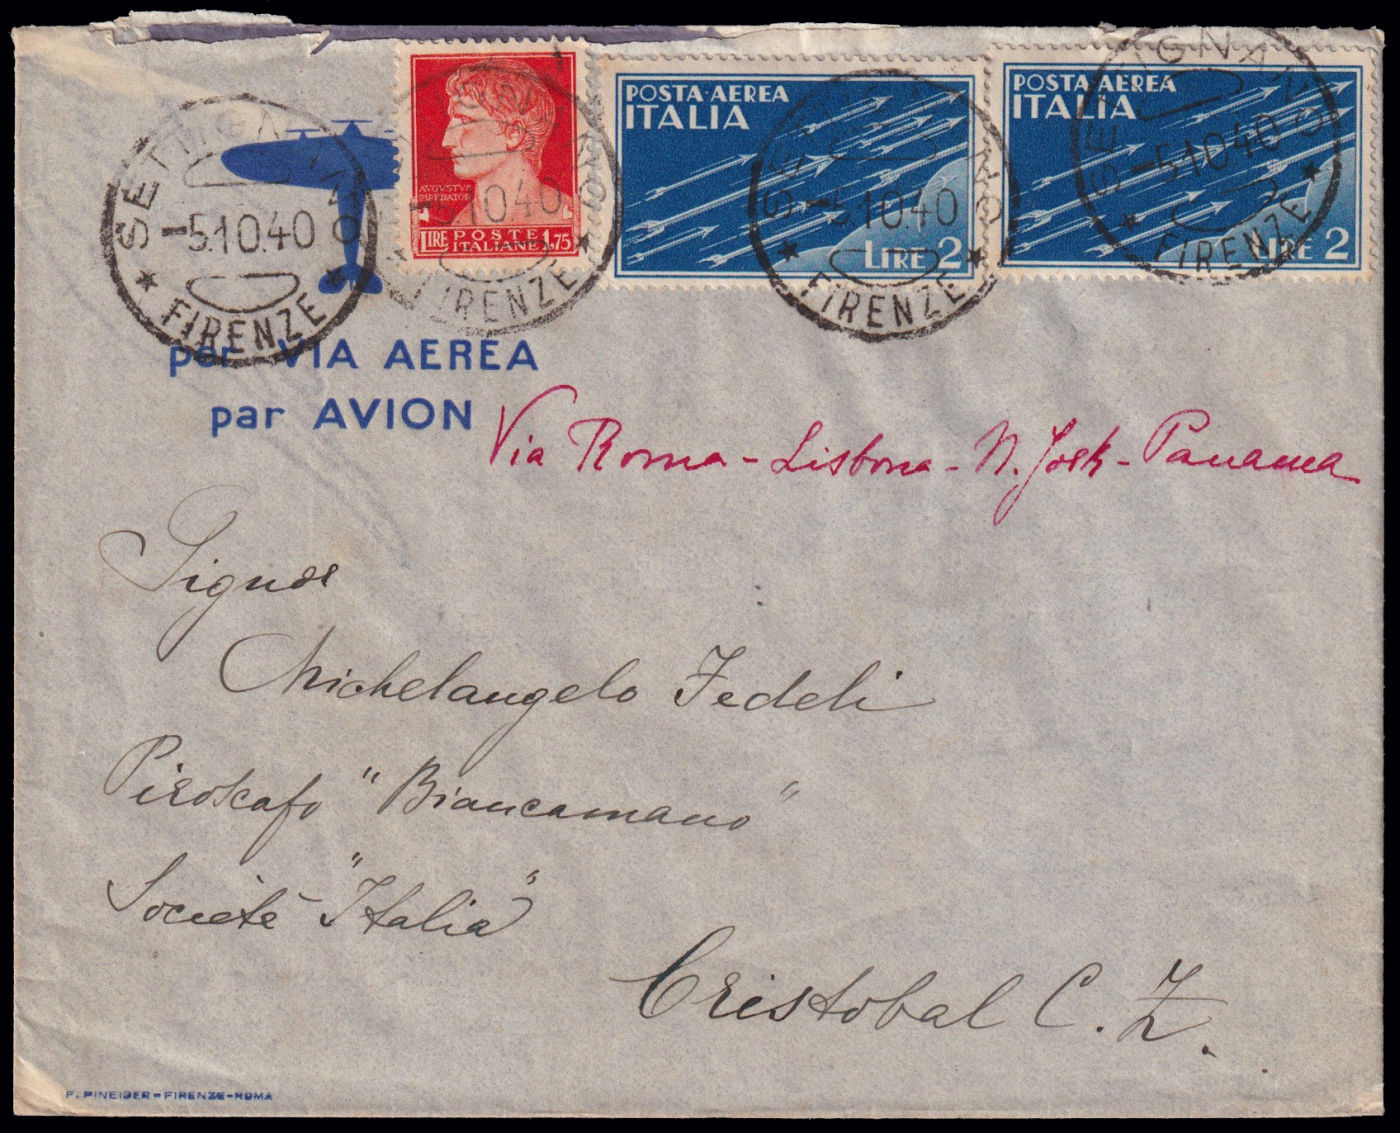 SETTIGNANO
-5.10.40
FIRENZE
AUGUSTVS
IMPERATOR
LIRE POSTE ITALIANE 1,75
SETTIGNANO
-5.10.40
FIRENZE
POSTA·AEREA
ITALIA
LIRE 2
SETTIGNANO
-5.10.40
FIRENZE
POSTA·AEREA
ITALIA
LIRE 2
SETTIGNANO
-5.10.40
FIRENZE
per VIA AEREA
par AVION
Via Roma - Lisbona - N. York - Panama
Signor
Michelangelo Fedeli
Piroscafo "Biancamano"
Società "Italia"
Cristobal C. Z.
P. PINEIDER-FIRENZE-ROMA